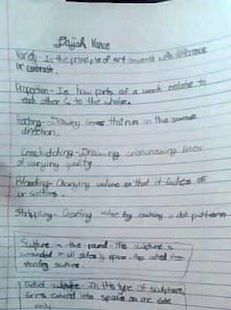 Vance
Variety - Is the principle of art concerned with difference
or contrast.
Proportion - Is how parts of a work relate to
each other & to the whole.
Hatching - Drawing lines that run in the same
direction.
Crosshatching - Drawing crisscrossing lines
of varying quality
Blending - Changing value so that it
or
Stippling - Creating value by making a dot pattern
in the round this sculpture is
surrounded on all sides by space. Also called free
standing
Relief - In this type of sculpture,
forms extend into space on one side
only.